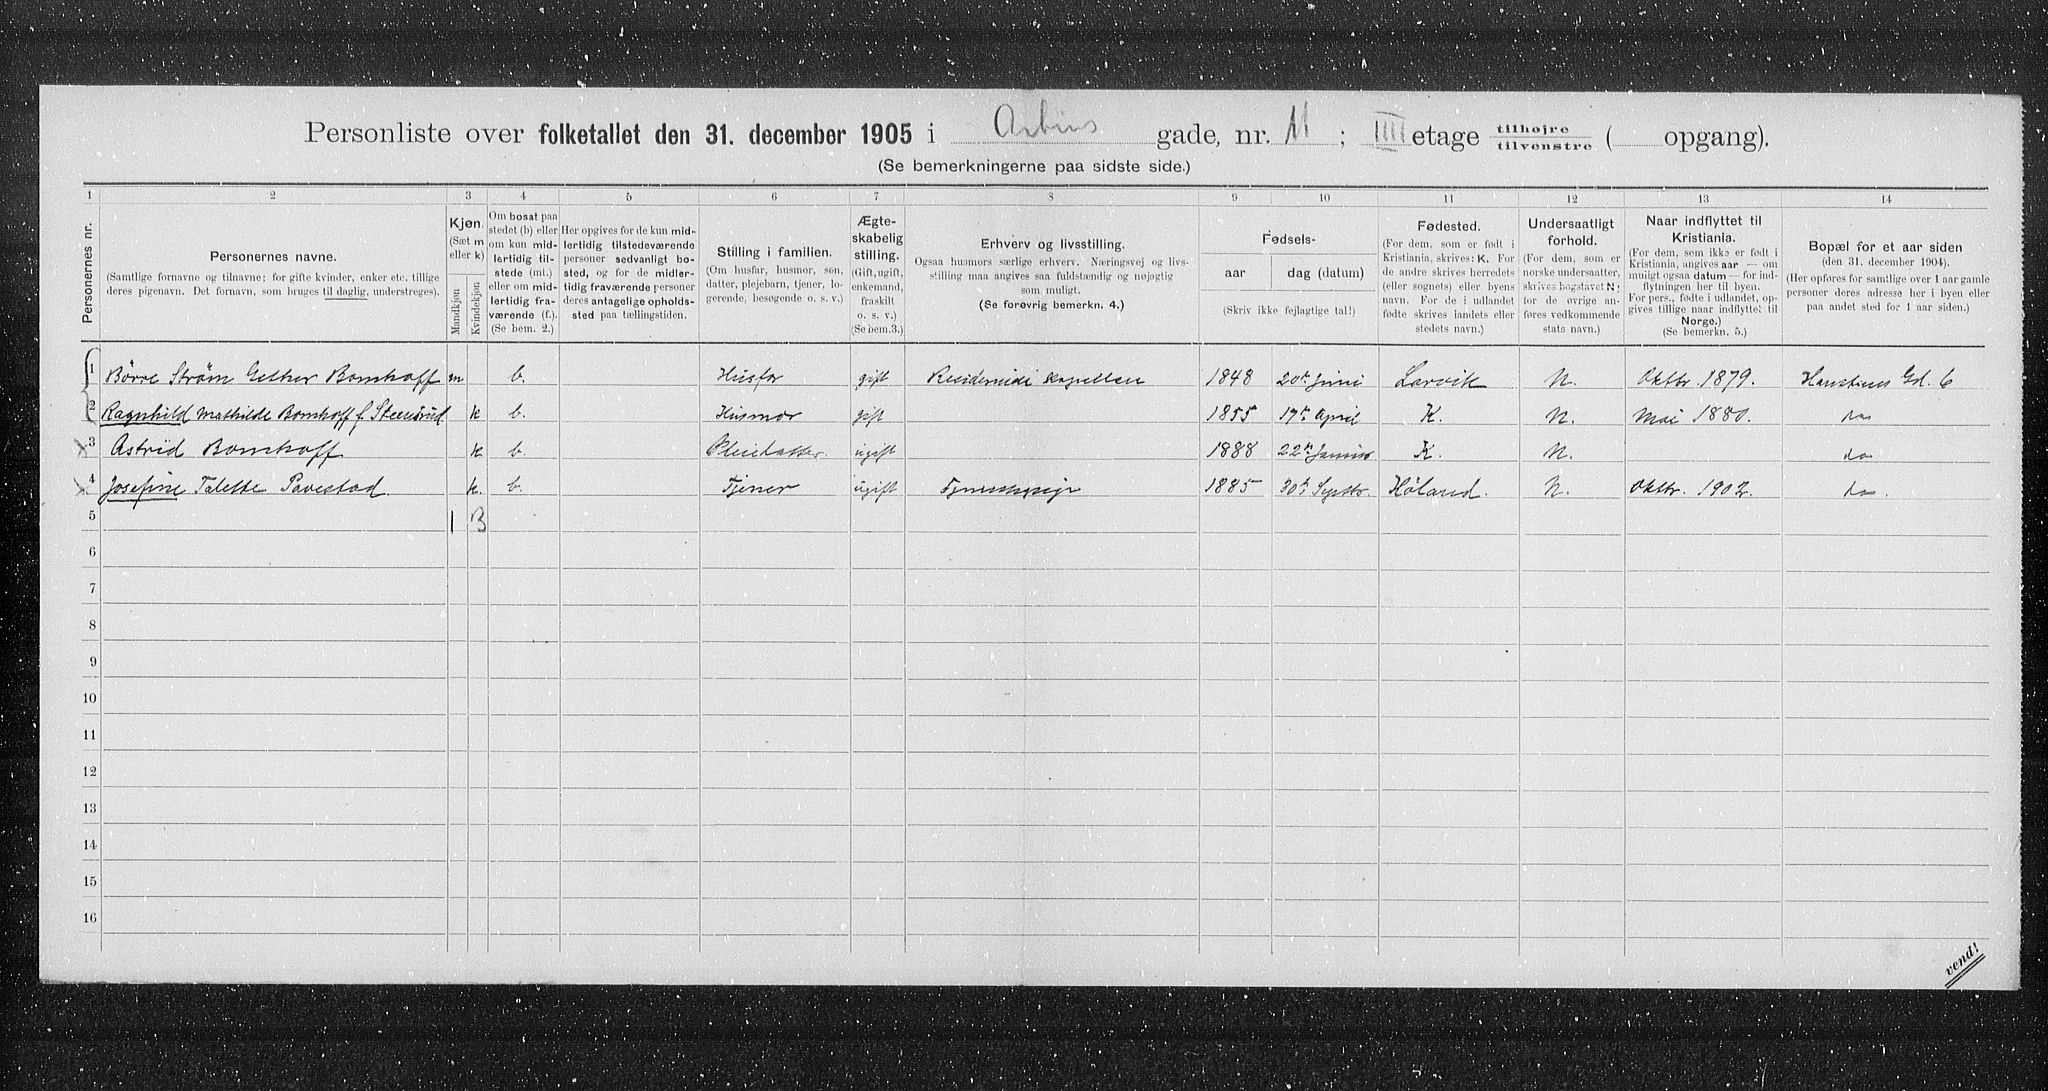 Personliste over folketallet den 31. december 1905 i Arbins gade, nr. 11; IIII etage tilhøjre tilvenstre ( opgang).
(Se bemerkningerne paa sidste side.)
1 2 3 4 5 6 7 8 9 10 11 12 13 14
Personernes nr.
Personernes navne.
(Samtlige fornavne og tilnavne; for gifte kvinder, enker etc. tillige
deres pigenavn. Det fornavn, som bruges til daglig, understreges).
Kjøn.
(Sæt m
eller k)
Mandkjøn
Kvindekjøn
Om bosat paa
stedet (b) eller
om kun mid-
lertidig til-
stede (mt.)
eller om mid-
lertidig fra-
værende (f.).
(Se bem. 2.)
Her opgives for de kun mid-
lertidig tilstedeværende
personer sedvanlig bo-
sted, og for de midler-
tidig fraværende personer
deres antagelige opholds-
sted paa tællingstiden.
Stilling i familien.
(Om husfar, husmor, søn,
datter, plejebarn, tjener, lo-
gerende, besøgende o. s. v.)
Ægte-
skabelig
stilling.
(Gift, ugift,
enkemand,
fraskilt
o. s. v.)
(Se bem.3.)
Erhverv og livsstilling.
Ogsaa husmors særlige erhverv. Næringsvej og livs-
stilling maa angives saa fuldstændig og nøjagtig
som muligt.
(Se forøvrig bemerkn. 4.)
Fødsels-
aar
dag (datum)
(Skriv ikke fejlagtige tal!)
Fødested.
(For dem, som er født i
Kristiania, skrives: K. For
de andre skrives herredets
(eller sognets) eller byens
navn. For de i udlandet
fødte skrives landets eller
stedets navn.)
Undersaatligt
forhold.
(For dem, som er
norske undersaatter,
skrives bogstavet N;
for de øvrige an-
føres vedkommende
stats navn.)
Naar indflyttet til
Kristiania.
(For dem, som ikke er født i
Kristiania, angives aar — om
muligt ogsaa datum — for ind-
flytningen her til byen.
For pers., fødte i udlandet, op-
gives tillige naar indflyttet til
Norge.)
(Se bemerkn. 5.)
Bopæl for et aar siden
(den 31. december 1904.)
(Her opføres for samtlige over 1 aar gamle
personer deres adresse her i byen eller
paa andet sted for 1 aar siden.)
1 Børre Strøm Gether Bomhoff m b. Husfar gift Residerende kapellan 1848 20de Juni Larvik N. Oktbr. 1879. Hausteens Gd. 6
2 Ragnhild Mathilde Bomhoff f. Steensrud k b. Husmor gift 1855 17de April K. N. Mai 1880. do
3 Astrid Bomhoff k b. Pleiedatter. ugift 1888 22de Januar K. N. do
4 Josefine Talette Pavestad k. b. Tjener ugift Tjenestepige 1885 30te Septbr. Høland. N. Oktbr. 1902. do.
5 1 3
6
7
8
9
10
11
12
13
14
15
16
vend!